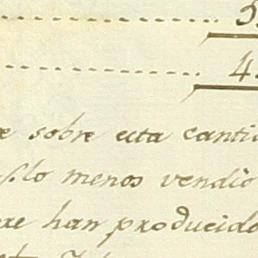 5
4
e sobre esta canti
lo menos vendio
han producido